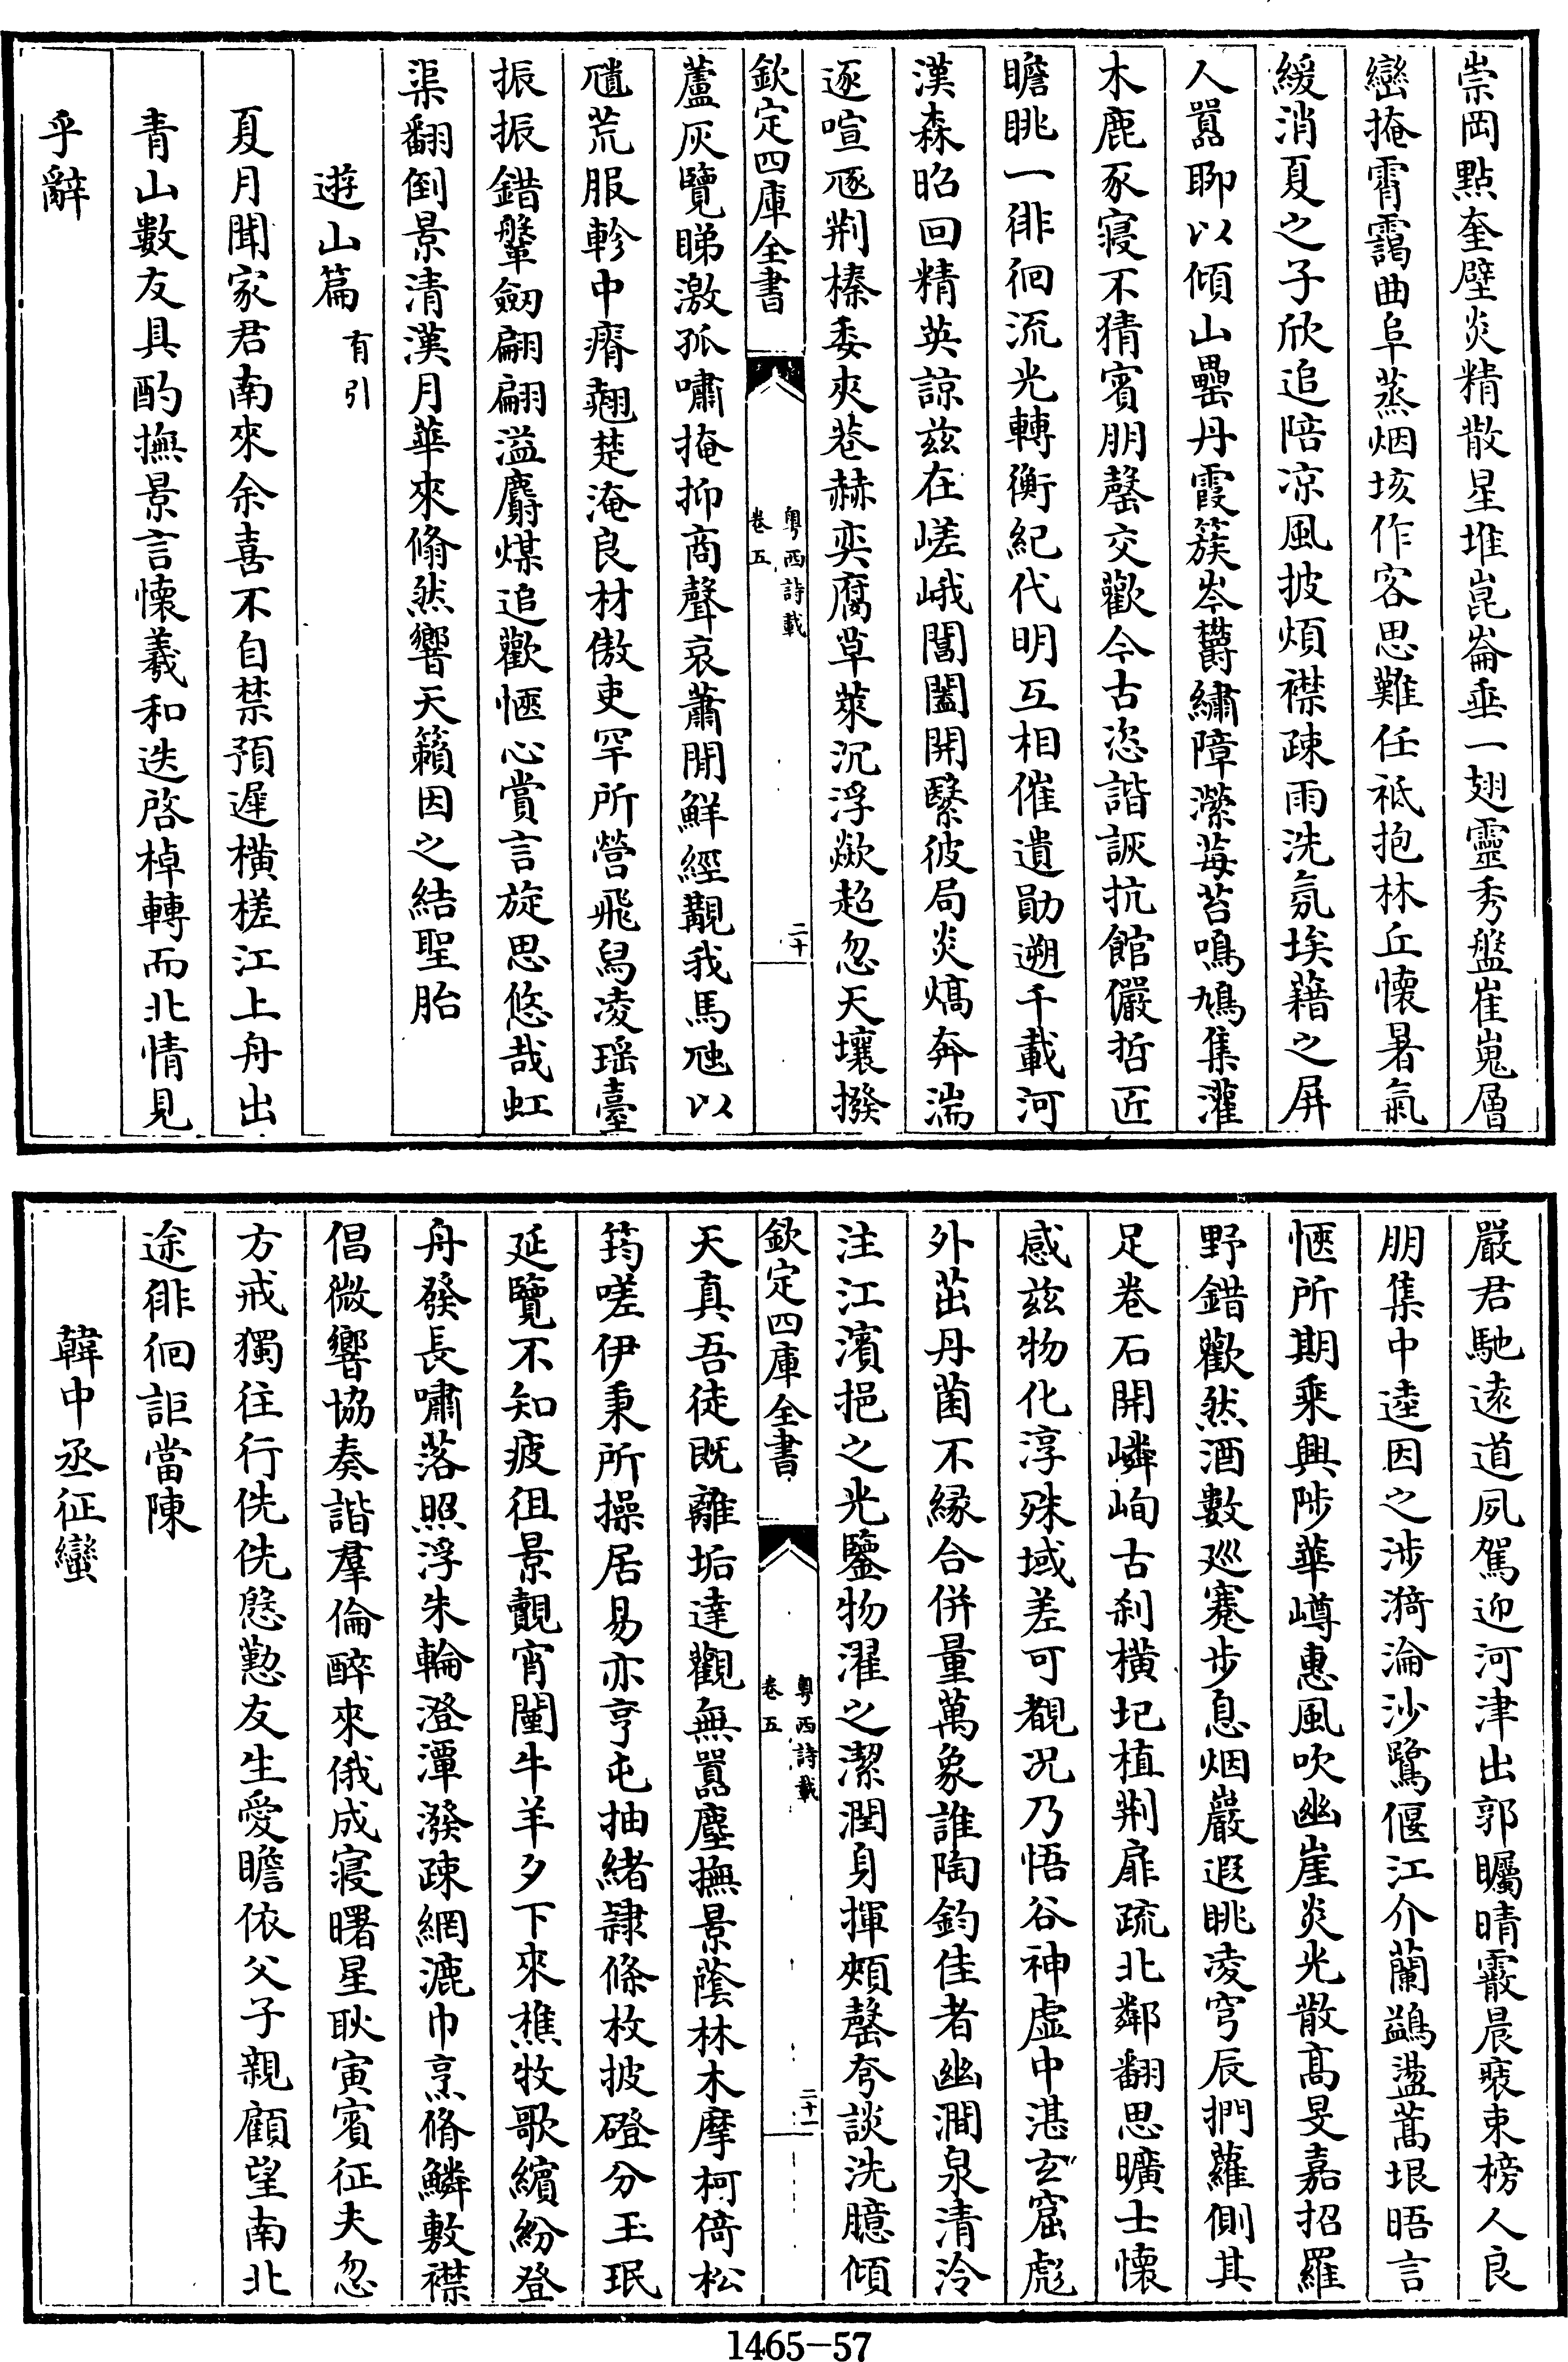 崇岡㸃奎壁炎精散星堆崑崙垂一翅靈秀盤崔嵬層
巒掩霄靄曲阜蒸烟垓作客思難任祗抱林丘懷暑氣
緩消夏之子欣追陪凉風披煩襟疎雨洗氛埃藉之屏
人囂聊以傾山罍丹霞簇岑欝繡障瀠莓苔鳴鳩集灌
木鹿豕寢不猜賓朋罄交歡今古恣諧詼抗館儼哲匠
瞻眺一徘徊流光轉衡紀代明互相催遺勛遡千載河
漢森昭回精英諒兹在嵯峨閶闔開繄彼局炎熇奔湍
逐喧豗荆榛委夾巷赫奕腐草萊沉浮歘超忽天壤撥
欽定四庫全書
粤西詩載
卷五
二十
蘆灰覽睇激孤嘯掩抑商聲哀蕭閒鮮經覯我馬虺以
隤荒服軫中瘠翹楚淹良材傲吏罕所營飛舄凌瑶臺
振振錯鞶劒翩翩溢麝煤追歡愜心賞言旋思悠哉虹
渠翻倒景清漢月華來翛然響天籟因之結聖胎
遊山篇有引
夏月聞家君南來余喜不自禁預遲橫槎江上舟出
青山數友具酌撫景言懷羲和迭啓棹轉而北情見
乎辭
嚴君馳逺道夙駕迎河津出郭矚晴霰晨裵束榜人良
朋集中逵因之涉漪淪沙鷺偃江介蘭鷁盪蒿垠晤言
愜所期乘興陟華嶟惠風吹幽崖炎光散髙旻嘉招羅
野錯歡然酒數廵蹇步息烟巖遐眺凌穹辰捫蘿側其
足卷石開嶙峋古刹橫圯植荆扉疏北鄰翻思曠士懷
感兹物化淳殊域差可覩况乃悟谷神虚中湛玄窟彪
外茁丹菌不縁合併量萬象誰陶鈞佳者幽澗泉清泠
注江濱挹之光鑒物濯之潔潤身揮頰罄夸談洗臆傾
欽定四庫全書
粤西詩載
卷五
二十一
天真吾徒既離垢達觀無囂塵撫景蔭林木摩柯倚松
筠嗟伊秉所操居易亦亨屯抽緒隷條枚披磴分玉珉
延覽不知疲徂景覿宵闉牛羊夕下來樵牧歌繽紛登
舟發長嘯落照浮朱輪澄潭潑疎網漉巾烹脩鱗敷襟
倡微響協奏諧羣倫醉來俄成寢曙星耿寅賓征夫忽
方戒獨往行侁侁慇懃友生愛瞻依父子親顧望南北
途徘徊詎當陳
韓中丞征蠻
1465-57